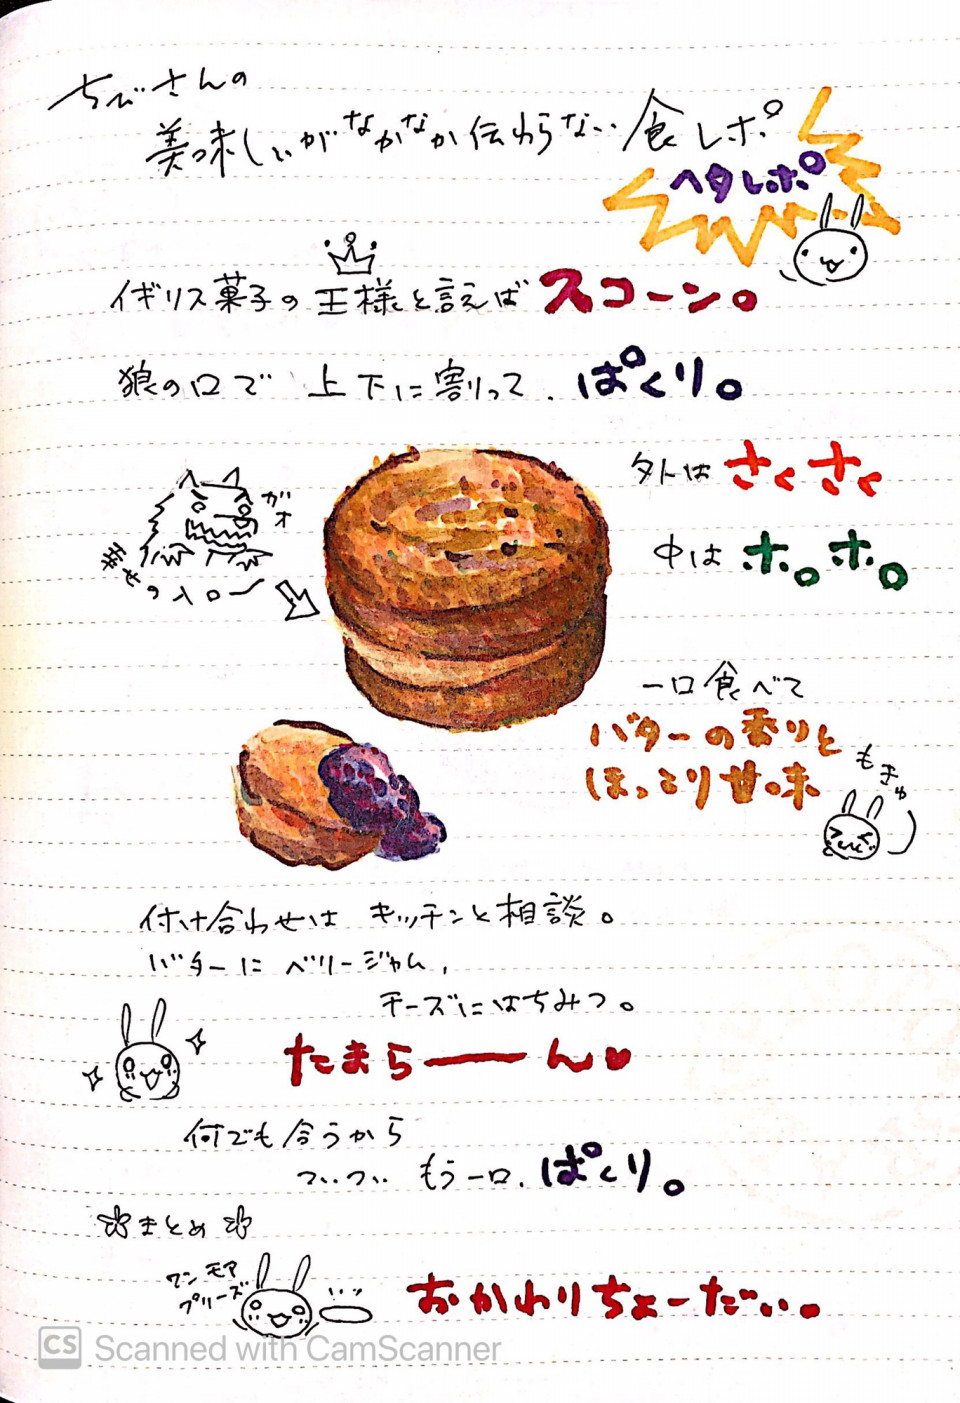 ちびさんの
美味しいがなかなか伝わらない食レポ
ヘタレポ
イギリス菓子の王様と言えばスコーン。
狼の口で 上下に割って、ぱくり。
ガオ
幸せの入口ー
外はさくさく
中はホロホロ
一口食べて
バターの香りと
ほっこり甘味
もきゅ
付け合わせは キッチンと相談。
バターに ベリージャム、
チーズにはちみつ。
たまらーーん♥
何でも合うから
ついつい もう一口、ぱくり。
まとめ
ワンモア
プリーズ
おかわりちょーだい。
CS Scanned with CamScanner